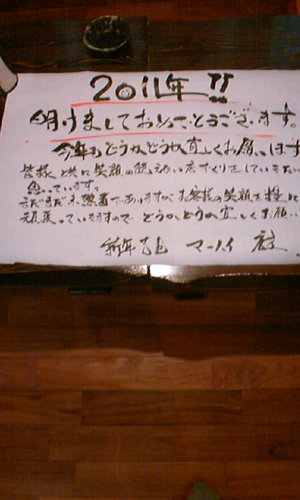 2011年!!
明けましておめでとうございます。
今年もどうぞどうぞ宜しくお願いします
皆様と共に笑顔の絶えない店づくりをしていきたい
思っています。
まだまだ未熟者でありますが、お客様の笑顔を
頑張っていきますので どうぞどうぞ宜しくお願い
新年